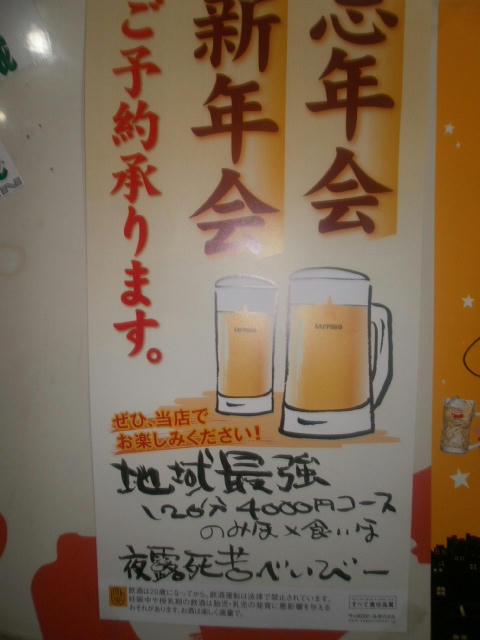 忘年会
新年会
ご予約承ります。
SAPPORO
SAPPORO
ぜひ、当店で
お楽しみください!
地域最強
120分4000円コース
のみほ×食いほ
夜露死苦べいびー
飲酒は20歳になってから。飲酒運転は法律で禁止されています。
妊娠中や授乳期の飲酒は胎児・乳児の発育に悪影響を与える
おそれがあります。お酒は楽しく適量で。
すべて責任品質